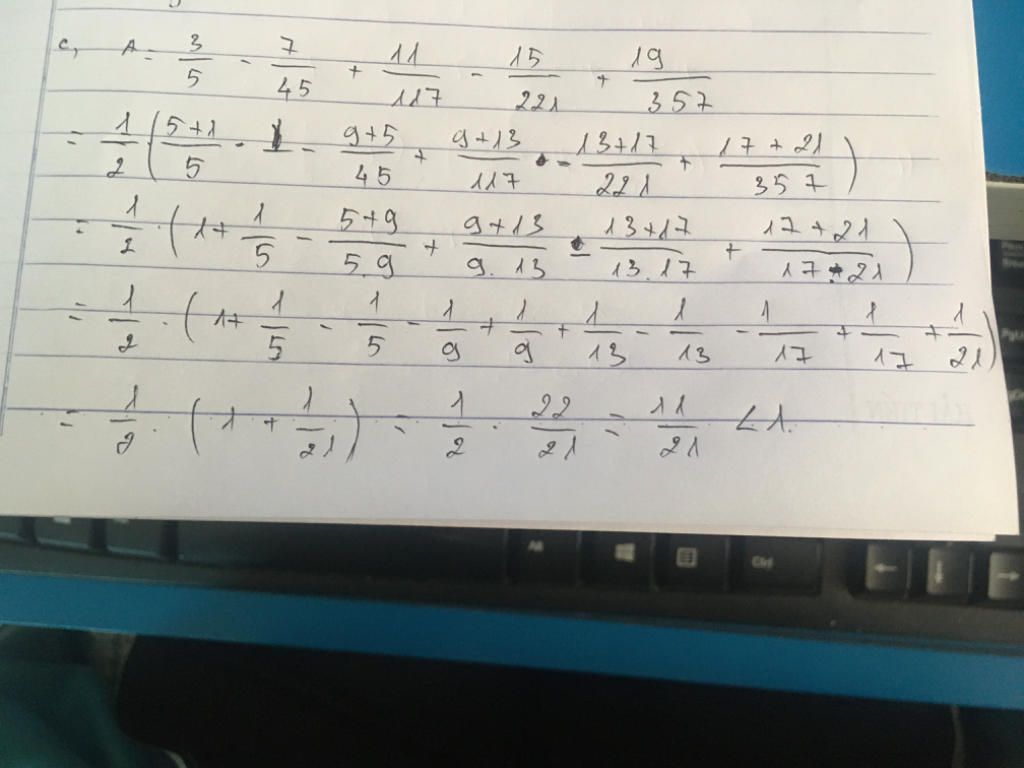 c, A = 3/5 - 7/45 + 11/117 - 15/221 + 19/357
= 1/2 . (5+1/5 - 9+5/45 + 9+13/117 - 13+17/221 + 17+21/357)
= 1/2 . (1 + 1/5 - 5+9/5.9 + 9+13/9.13 - 13+17/13.17 + 17+21/17.21)
= 1/2 . (1+ 1/5 - 1/5 - 1/9 + 1/9 + 1/13 - 1/13 - 1/17 + 1/17 + 1/21)
= 1/2 . (1 + 1/21) = 1/2 . 22/21 = 11/21 < 1.
Alt
Ctrl